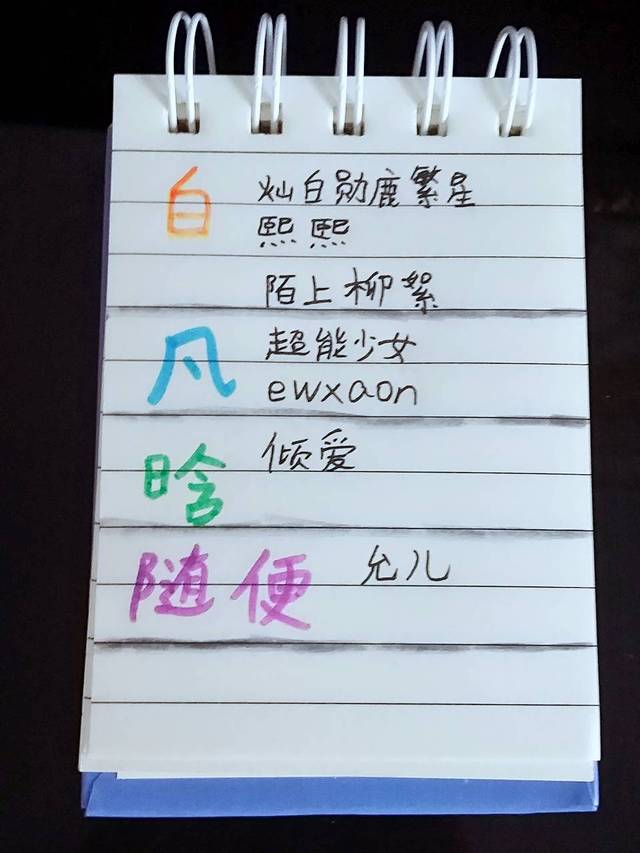 白 灿白勋鹿繁星
熙熙
陌上柳絮
凡 超能少女
ewxaon
晗 倾爱
随便 允儿